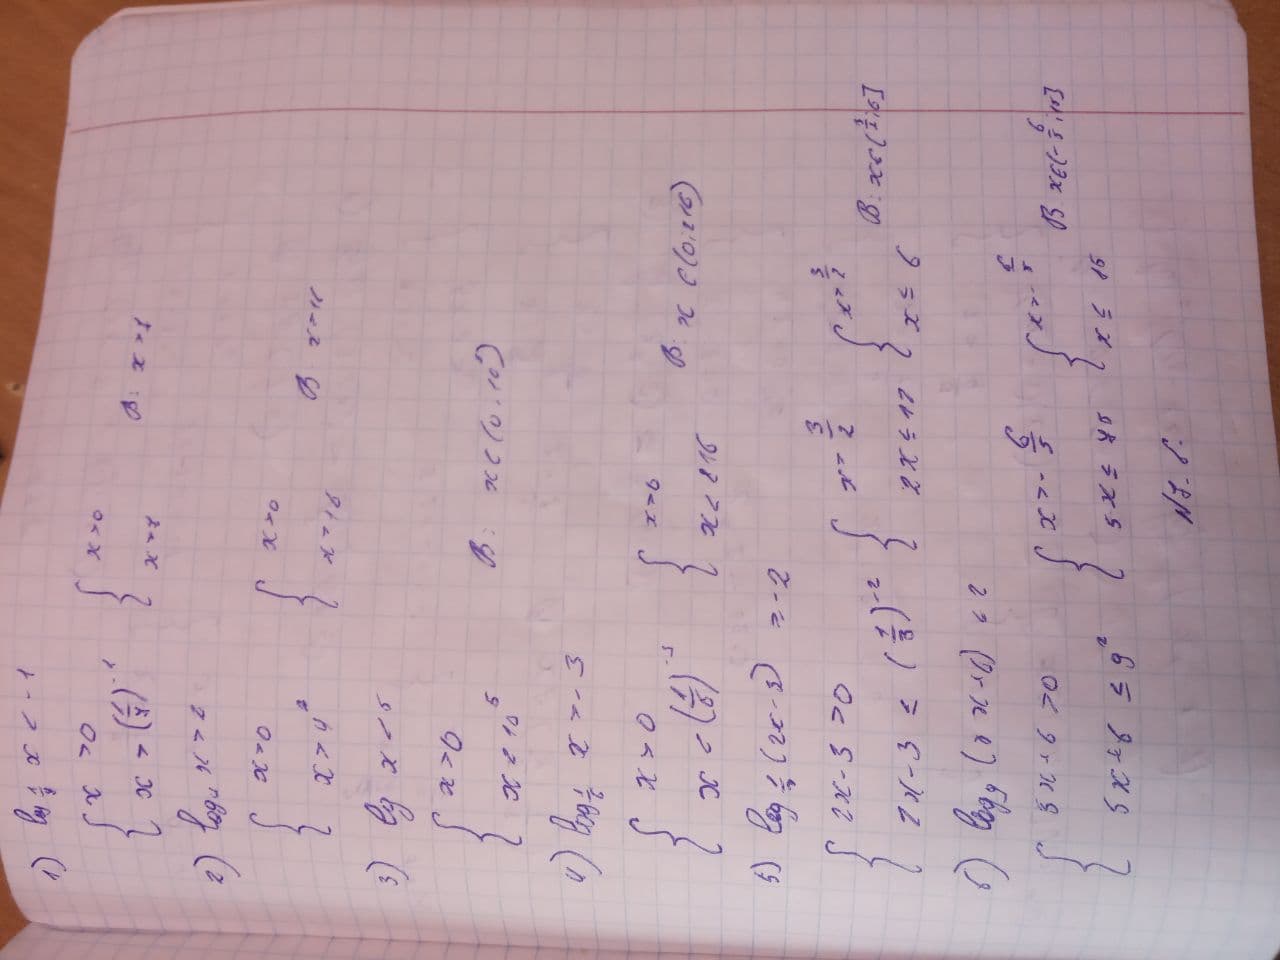 1) log_{1/7} x < -1
{ x > 0
x > (1/7)^{-1}
{ x > 0
x > 7
В: x > 7
2) log₄ x > 2
{ x > 0
x > 4²
{ x > 0
x > 16
В x > 16
3) lg x < 5
{ x > 0
x < 10⁵
В: x ∈ (0; 10⁵)
4) log_{1/6} x > -3
{ x > 0
x < (1/6)^{-3}
{ x > 0
x < 216
В: x ∈ (0; 216)
5) log_{1/3} (2x - 3) ≥ -2
{ 2x - 3 > 0
2x - 3 ≤ (1/3)^{-2}
{ x > 3/2
2x ≤ 12
{ x > 3/2
x ≤ 6
В: x ∈ (3/2; 6]
6) log₉ (5x + 6) ≤ 2
{ 5x + 6 > 0
5x + 6 ≤ 9²
{ x > - 6/5
5x ≤ 75
{ x > - 6/5
x ≤ 15
В x ∈ (- 6/5; 15]